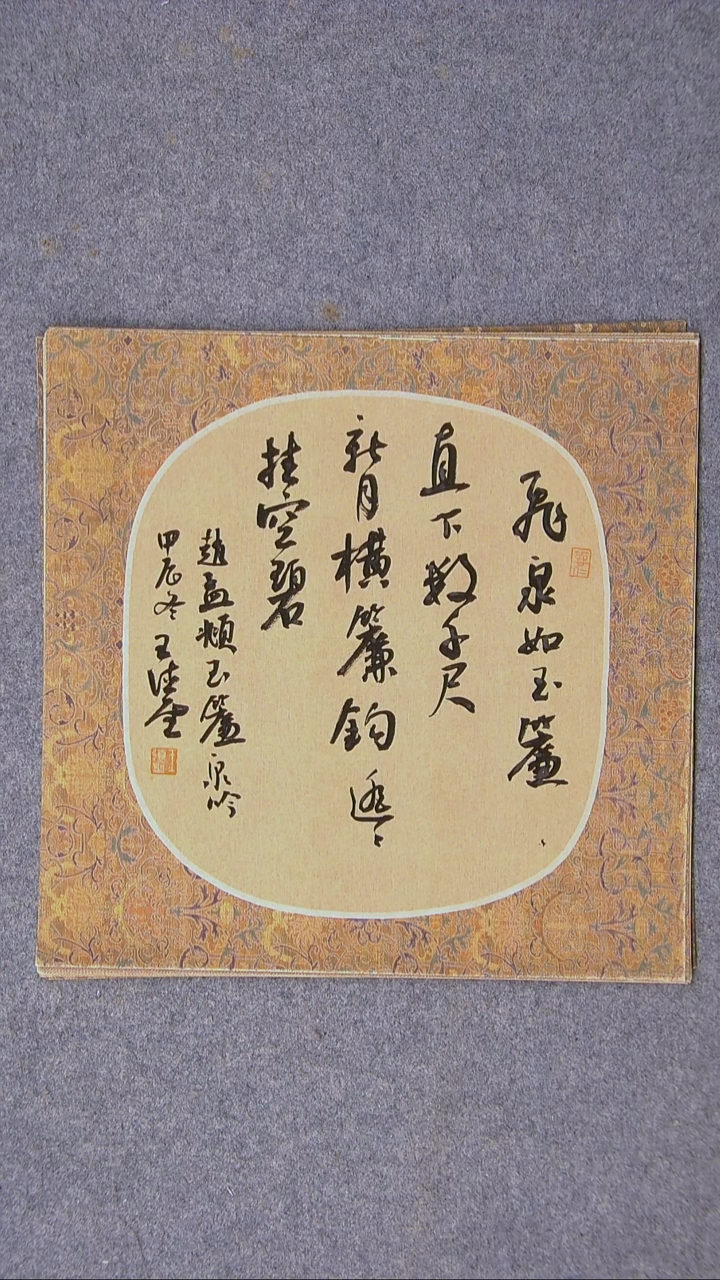 飛泉如玉簾
直下數千尺
新月橫簾鉤遙〻
挂空碧
趙孟頫玉簾泉吟
甲辰冬王